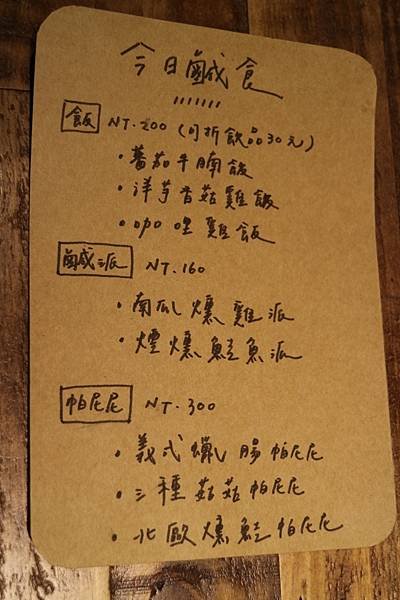 今日鹹食
飯 NT.200 (可折飲品30元)
・蕃茄牛腩飯
・洋芋香菇雞飯
・咖哩雞飯
鹹派 NT.160
・南瓜燻雞派
・煙燻鮭魚派
帕尼尼 NT.300
・義式臘腸帕尼尼
・三種菇菇帕尼尼
・北歐燻鮭帕尼尼